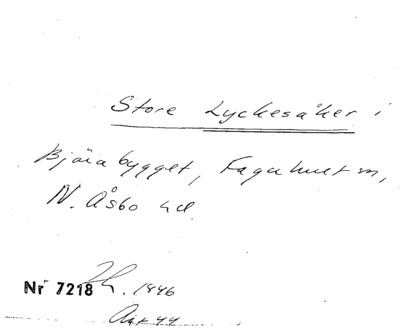 Store Lyckesåker i
Bjärabygget, Fagerhult sn,
N. Åsbo hd.
Nr 7218 1946